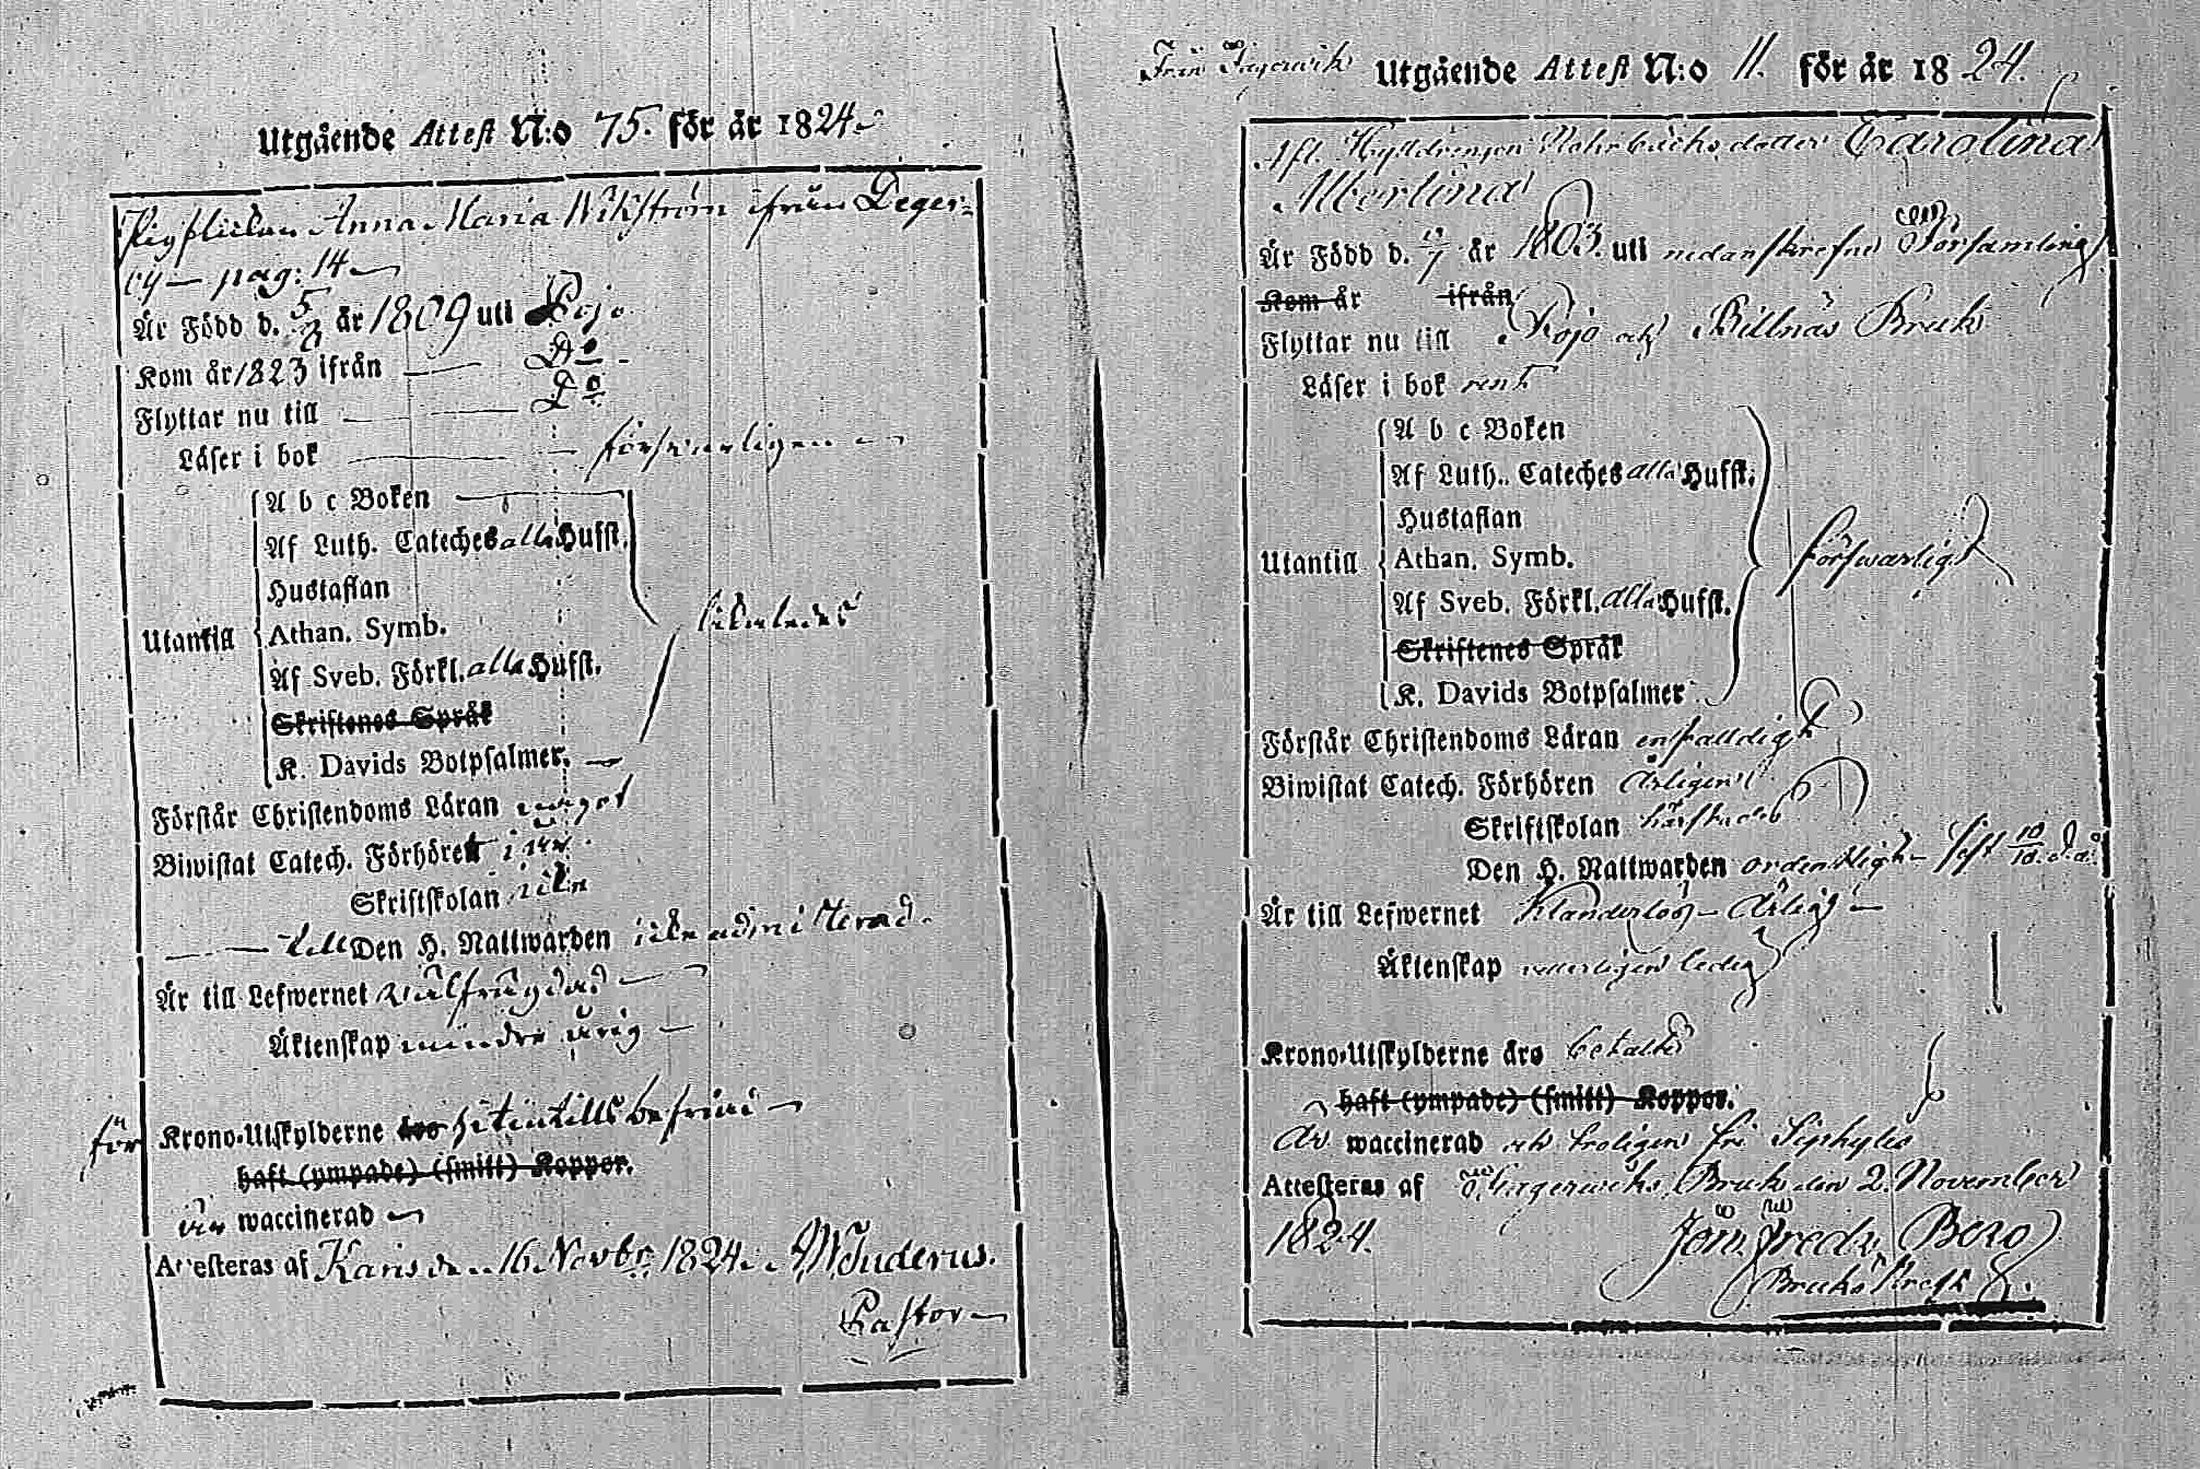 Utgående Attest N:o 75. för år 1824
Anna Maria Wikström ifrån Deger=
by — pag: 14
Är Född d. 5/ år 1809 uti Pojo
Kom år 1823 ifrån — Do
Flyttar nu till — Do
Läser i bok — försvarligen
A b c Boken
Af Luth. Cateches alla Hufst.
Hustaflan
Utantill Athan. Symb.
Af Sveb. Förkl. alla Hufst.
Skriftenes Språk
K. Davids Botpsalmer.
likaledes
Förstår Christendoms Läran något
Biwistat Catech. Förhöret
Skriftskolan icke
till Den H. Nattwarden icke admitterad.
Är till Lefwernet wälfrägdad
Äktenskap mindre årig
för Krono-Utskylderne äro hitintills befriad
haft (ympade) (smitt) Koppor.
är waccinerad
Attesteras af Karis den 16 Novbr 1824.
Pastor
Från Fagerwik Utgående Attest N:o 11. för år 1824.
Afl. dotter Carolina
Albertina
Är Född d. år 1803. uti nedanskrefne Församling
Kom år ifrån
Flyttar nu till Pojo och Billnäs Bruk
Läser i bok rent
A b c Boken
Af Luth. Cateches alla Hufst.
Hustaflan
Utantill Athan. Symb.
Af Sveb. Förkl. alla Hufst.
Skriftenes Språk
K. Davids Botpsalmer
förswarligt
Förstår Christendoms Läran enfaldigt
Biwistat Catech. Förhören årligen
Skriftskolan
Den H. Nattwarden ordentligt — sist 10/10 d. å.
Är till Lefwernet klanderlös — ärlig
Äktenskap ledig
Krono-Utskylderne äro betalte
haft (ympade) (smitt) Koppor.
Är waccinerad och troligen fri Siphylis
Attesteras af Fagerwiks Bruk den 2. November
1824. Joh. Fredr. Berg
Bruks Pred.